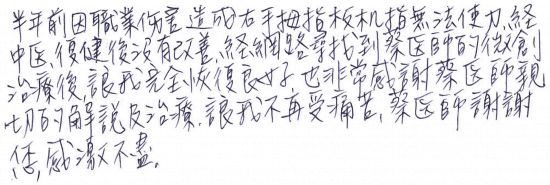 半年前因職業伤害造成右手拇指板机指無法使力.經
中医.復健後沒有改善.經網路尋找到蔡医師的微創
治療後,讓我完全恢復良好,也非常感謝蔡医師親
切的解說及治療.讓我不再受痛苦,蔡医師謝謝
您,感激不盡。